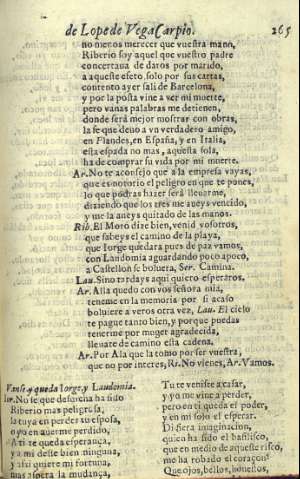 de Lope de Vega Carpio. 265
no menos merecer que vuestra mano,
Riberio soy aquel que vuestro padre
concertaua de daros por marido,
a aqueste efeto solo por sus cartas,
contento ayer sali de Barcelona,
y por la posta vine a ver mi muerte,
pero vanas palabras me detienen,
donde serà mejor mostrar con obras,
la fe que deuo a vn verdadero amigo,
en Flandes, en España, y en Italia,
esta espada no mas, aquesta sola,
ha de comprar su vida por mi muerte.
Ar. No te aconsejo que a la empresa vayas,
que es notorio el peligro en que te pones,
lo que podras hazer serà lleuarme,
diziendo que los tres me aueys vencido,
y me la aueys quitado de las manos.
Rib. El Moro dize bien, venid vosotros,
que sabeys el camino de la playa,
que Iorge quedara pues de paz vamos,
con Laudomia aguardando poco a poco,
a Castellon se boluera, Ser. Camina.
Lau. Sino tardays aqui quiero esperaros.
Ar. Alla quedo con vos señora mia,
teneme en la memoria por si acaso
boluiere a veros otra vez, Lau. El cielo
te pague tanto bien, y porque puedas
tenerme por muger agradecida,
lleuate de camino esta cadena.
Ar. Por Ala que la tomo por ser vuestra,
que no por interes, Ri. No vienes, Ar. Vamos.
Vanse y queda Iorge, y Laudomia.
Ior. No se que desdicha ha sido
Riberio mas peligrosa,
la tuya en perder tu esposa,
o yo en auerme perdido,
A ti te queda esperança,
y a mi deste bien ninguna,
y assi quiere mi fortuna,
mas espera la mudança,
Tu te veniste a casar,
y yo me vine a perder,
pero en ti queda el poder,
en mi solo el esperar.
Dixera imaginacion,
quien ha sido el basilisco,
que en medio de aqueste risco,
me ha robado el coraçon?
Que ojos, bellos, honestos,